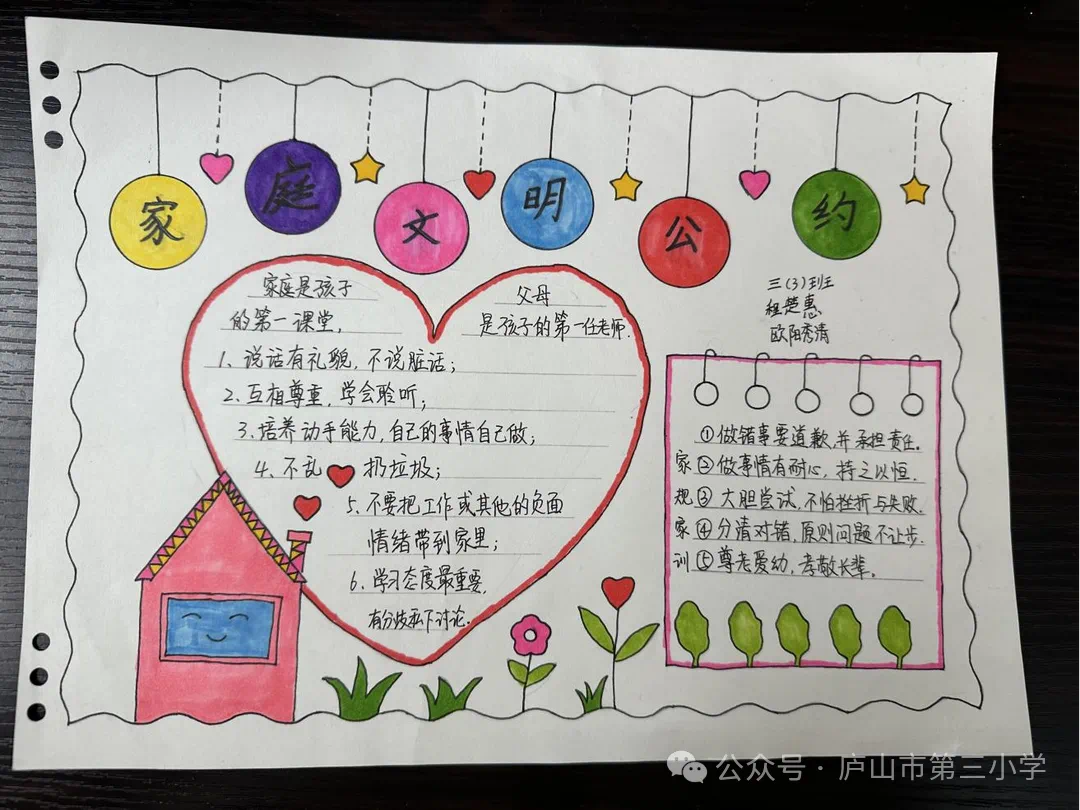 家庭文明公约
三(3)班
程楚惠
欧阳秀清
家庭是孩子
的第一课堂,
父母
是孩子的第一任老师.
1、说话有礼貌,不说脏话;
2、互相尊重,学会聆听;
3、培养动手能力,自己的事情自己做;
4、不乱扔垃圾;
5、不要把工作或其他的负面
情绪带到家里;
6、学习态度最重要,
有分歧私下讨论.
家规家训
①做错事要道歉,并承担责任.
②做事情有耐心,持之以恒.
③大胆尝试,不怕挫折与失败.
④分清对错,原则问题不让步.
⑤尊老爱幼,孝敬长辈.
公众号·庐山市第三小学